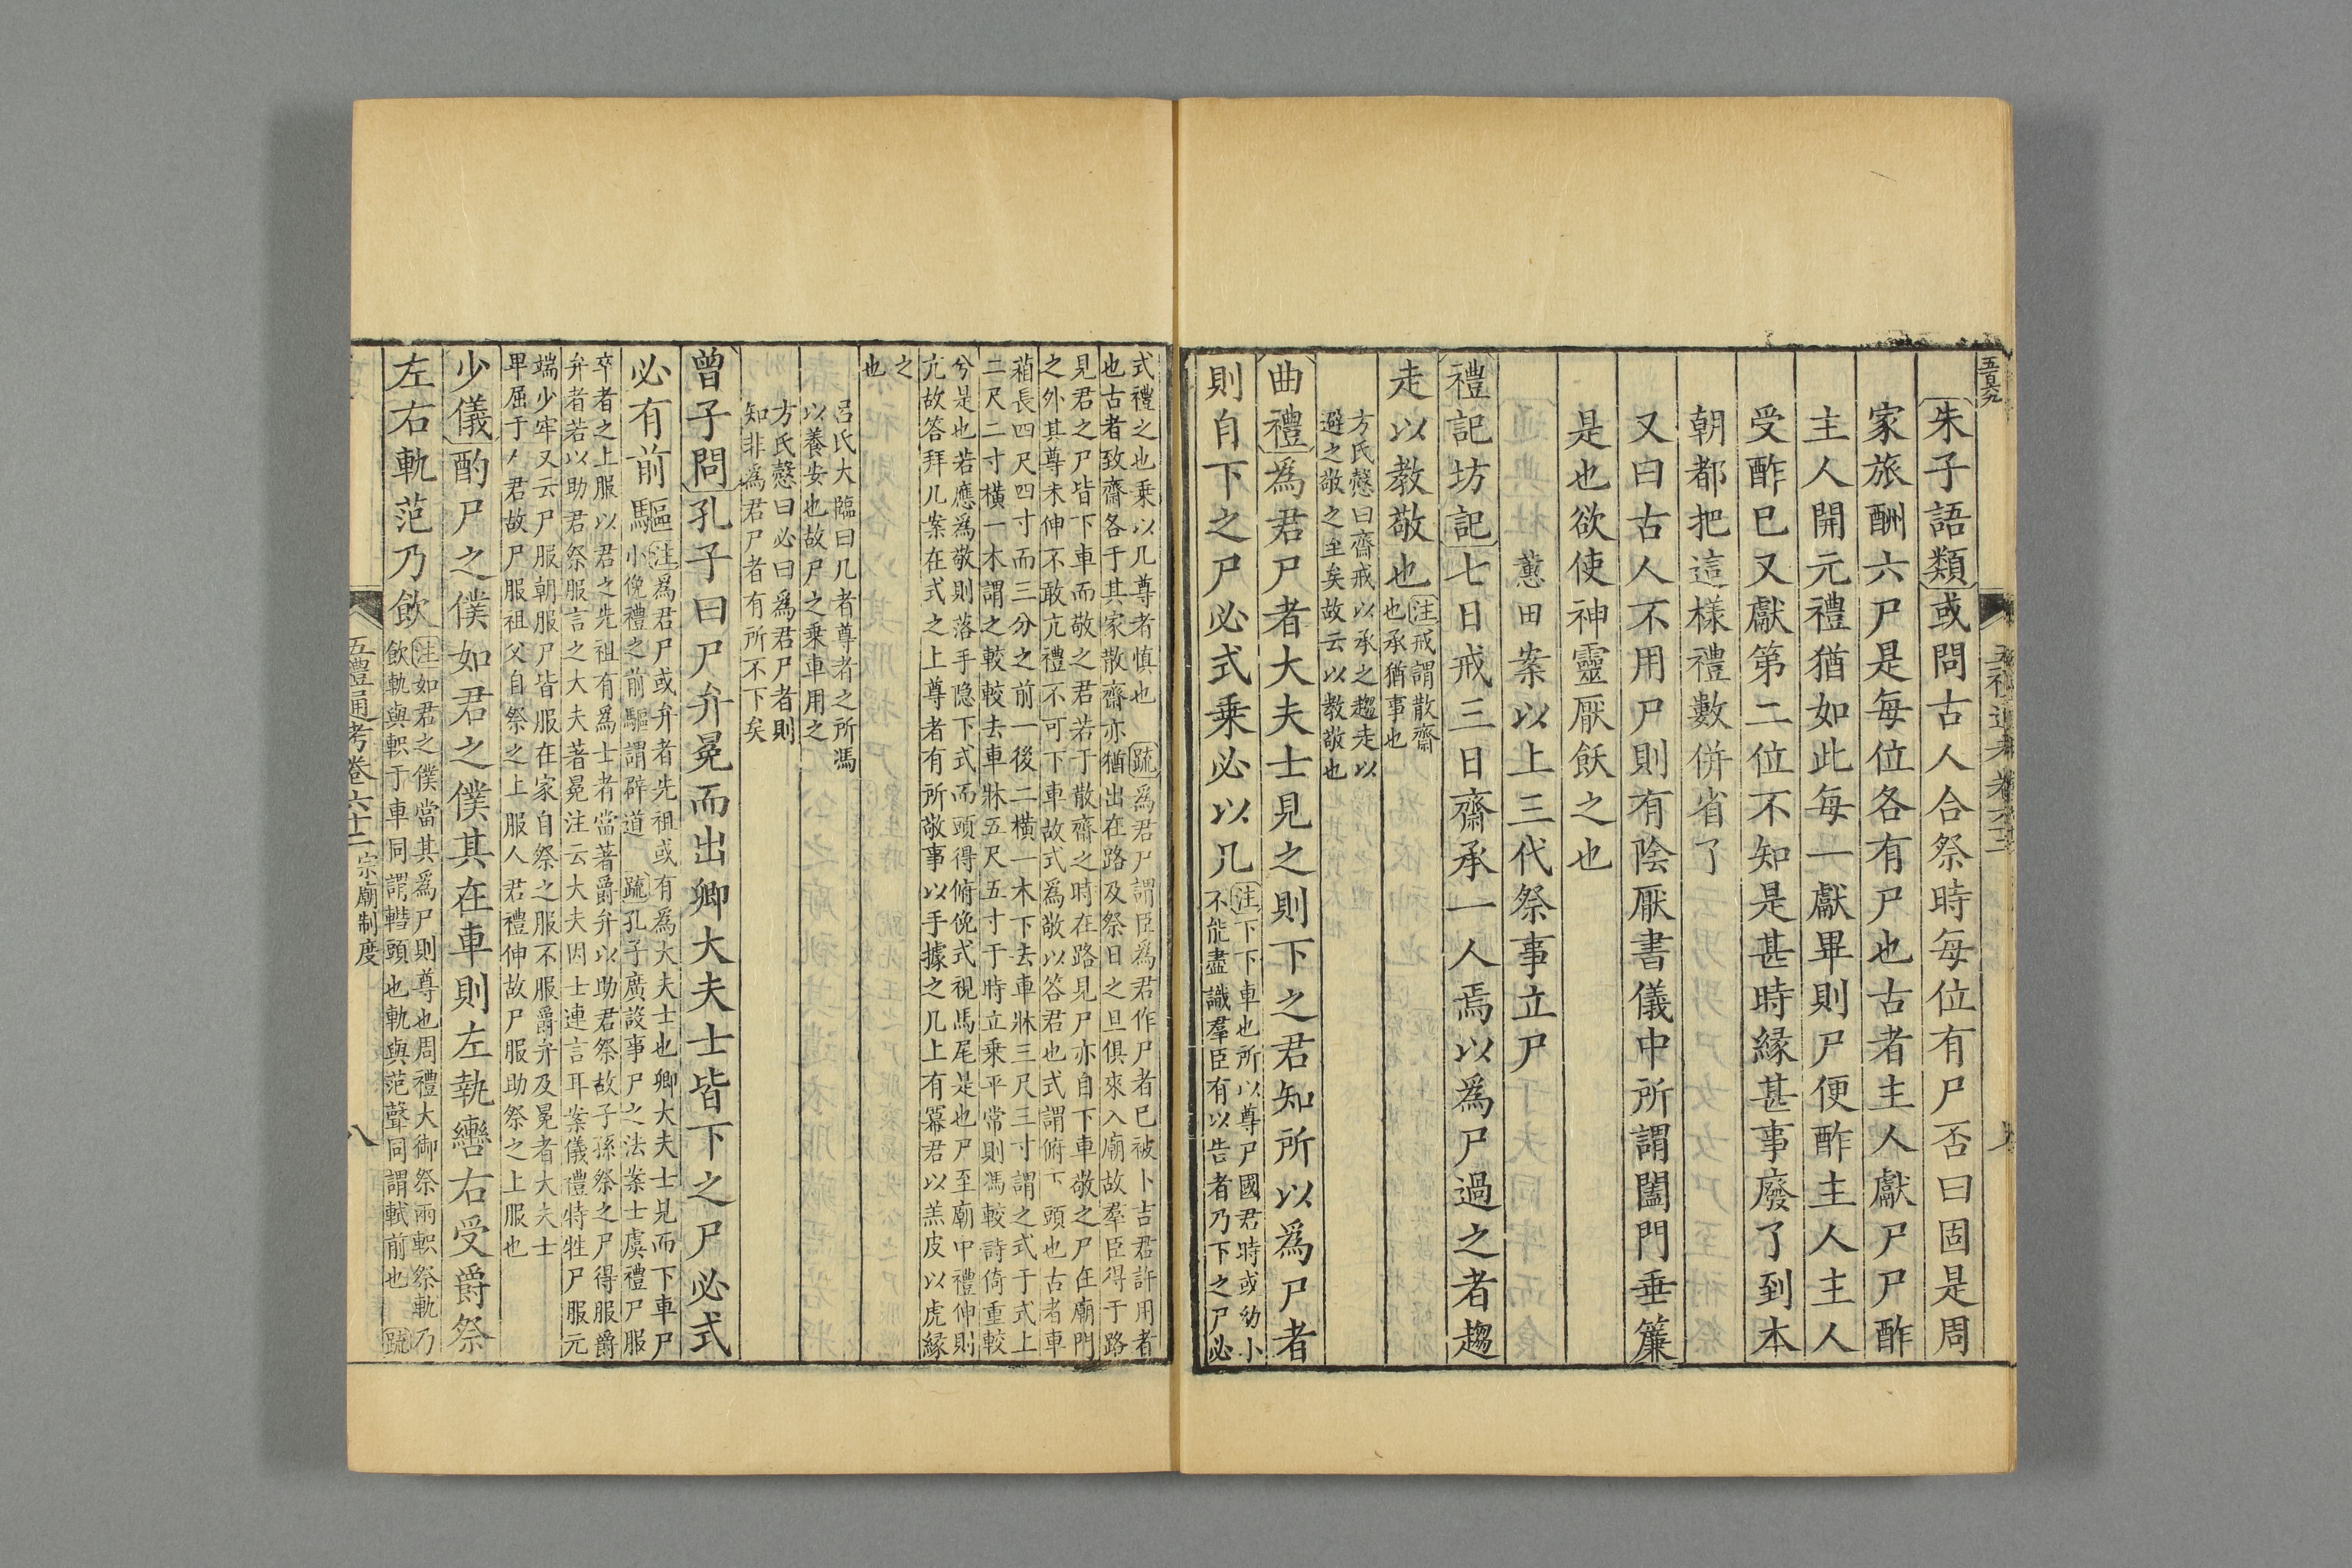 朱子語類或問古人合祭時每位有尸否曰固是周
家旅酬六尸是每位各有尸也古者主人獻尸尸酢
主人開元禮猶如此每一獻畢則尸便酢主人主人
受酢巳又獻第二位不知是甚時緣甚事廢了到本
朝都把這樣禮數併省了
又曰古人不用尸則有陰厭書儀中所謂闔門垂簾
是也欲使神靈厭飫之也
蕙田案以上三代祭事立尸
禮記坊記七日戒三日齋承一人焉以爲尸過之者趨
走以教敬也注戒謂散齋
也承猶事也
方氏慤曰齋戒以承之趨走以
避之敬之至矣故云以教敬也
曲禮爲君尸者大夫士見之則下之君知所以爲尸者
則自下之尸必式乗必以几注下下車也所以尊尸國君時或幼小
不能盡識羣臣有以告者乃下之尸必
式禮之也乗以几尊者慎也 疏爲君尸謂臣爲君作尸者巳被卜吉君許用者
也古者致齋各于其家散齋亦猶出在路及祭日之旦俱來入廟故羣臣得于路
見君之尸皆下車而敬之君若于散齋之時在路見尸亦自下車敬之尸在廟門
之外其尊未伸不敢亢禮不可下車故式爲敬以答君也式謂俯下頭也古者車
箱長四尺四寸而三分之前一後二橫一木下去車牀三尺三寸謂之式于式上
二尺二寸橫一木謂之較較去車牀五尺五寸于時立乗平常則馮較詩倚重較
兮是也若應爲敬則落手隱下式而頭得俯俛式視馬尾是也尸至廟中禮伸則
亢故答拜几案在式之上尊者有所敬事以手據之几上有冪君以羔皮以虎緣
之
也
呂氏大臨曰几者尊者之所馮
以養安也故尸之乗車用之
方氏慤曰必曰爲君尸者則
知非爲君尸者有所不下矣
曾子問孔子曰尸弁冕而出卿大夫士皆下之尸必式
必有前驅注爲君尸或弁者先祖或有爲大夫士也卿大夫士見而下車尸
小俛禮之前驅謂辟道 疏孔子廣談事尸之法案士虞禮尸服
卒者之上服以君之先祖有爲士者當著爵弁以助君祭故子孫祭之尸得服爵
弁者若以助君祭服言之大夫著冕注云大夫因士連言耳案儀禮特牲尸服元
端少牢又云尸服朝服尸皆服在家自祭之服不服爵弁及冕者大夫士
卑屈于人君故尸服祖父自祭之上服人君禮伸故尸服助祭之上服也
少儀酌尸之僕如君之僕其在車則左執轡右受爵祭
左右軌范乃飲注如君之僕當其爲尸則尊也周禮大御祭兩軹祭軌乃
飲軌與軹于車同謂轊頭也軌與范聲同謂軾前也 疏
五禮通考卷六十二 宗廟制度
八